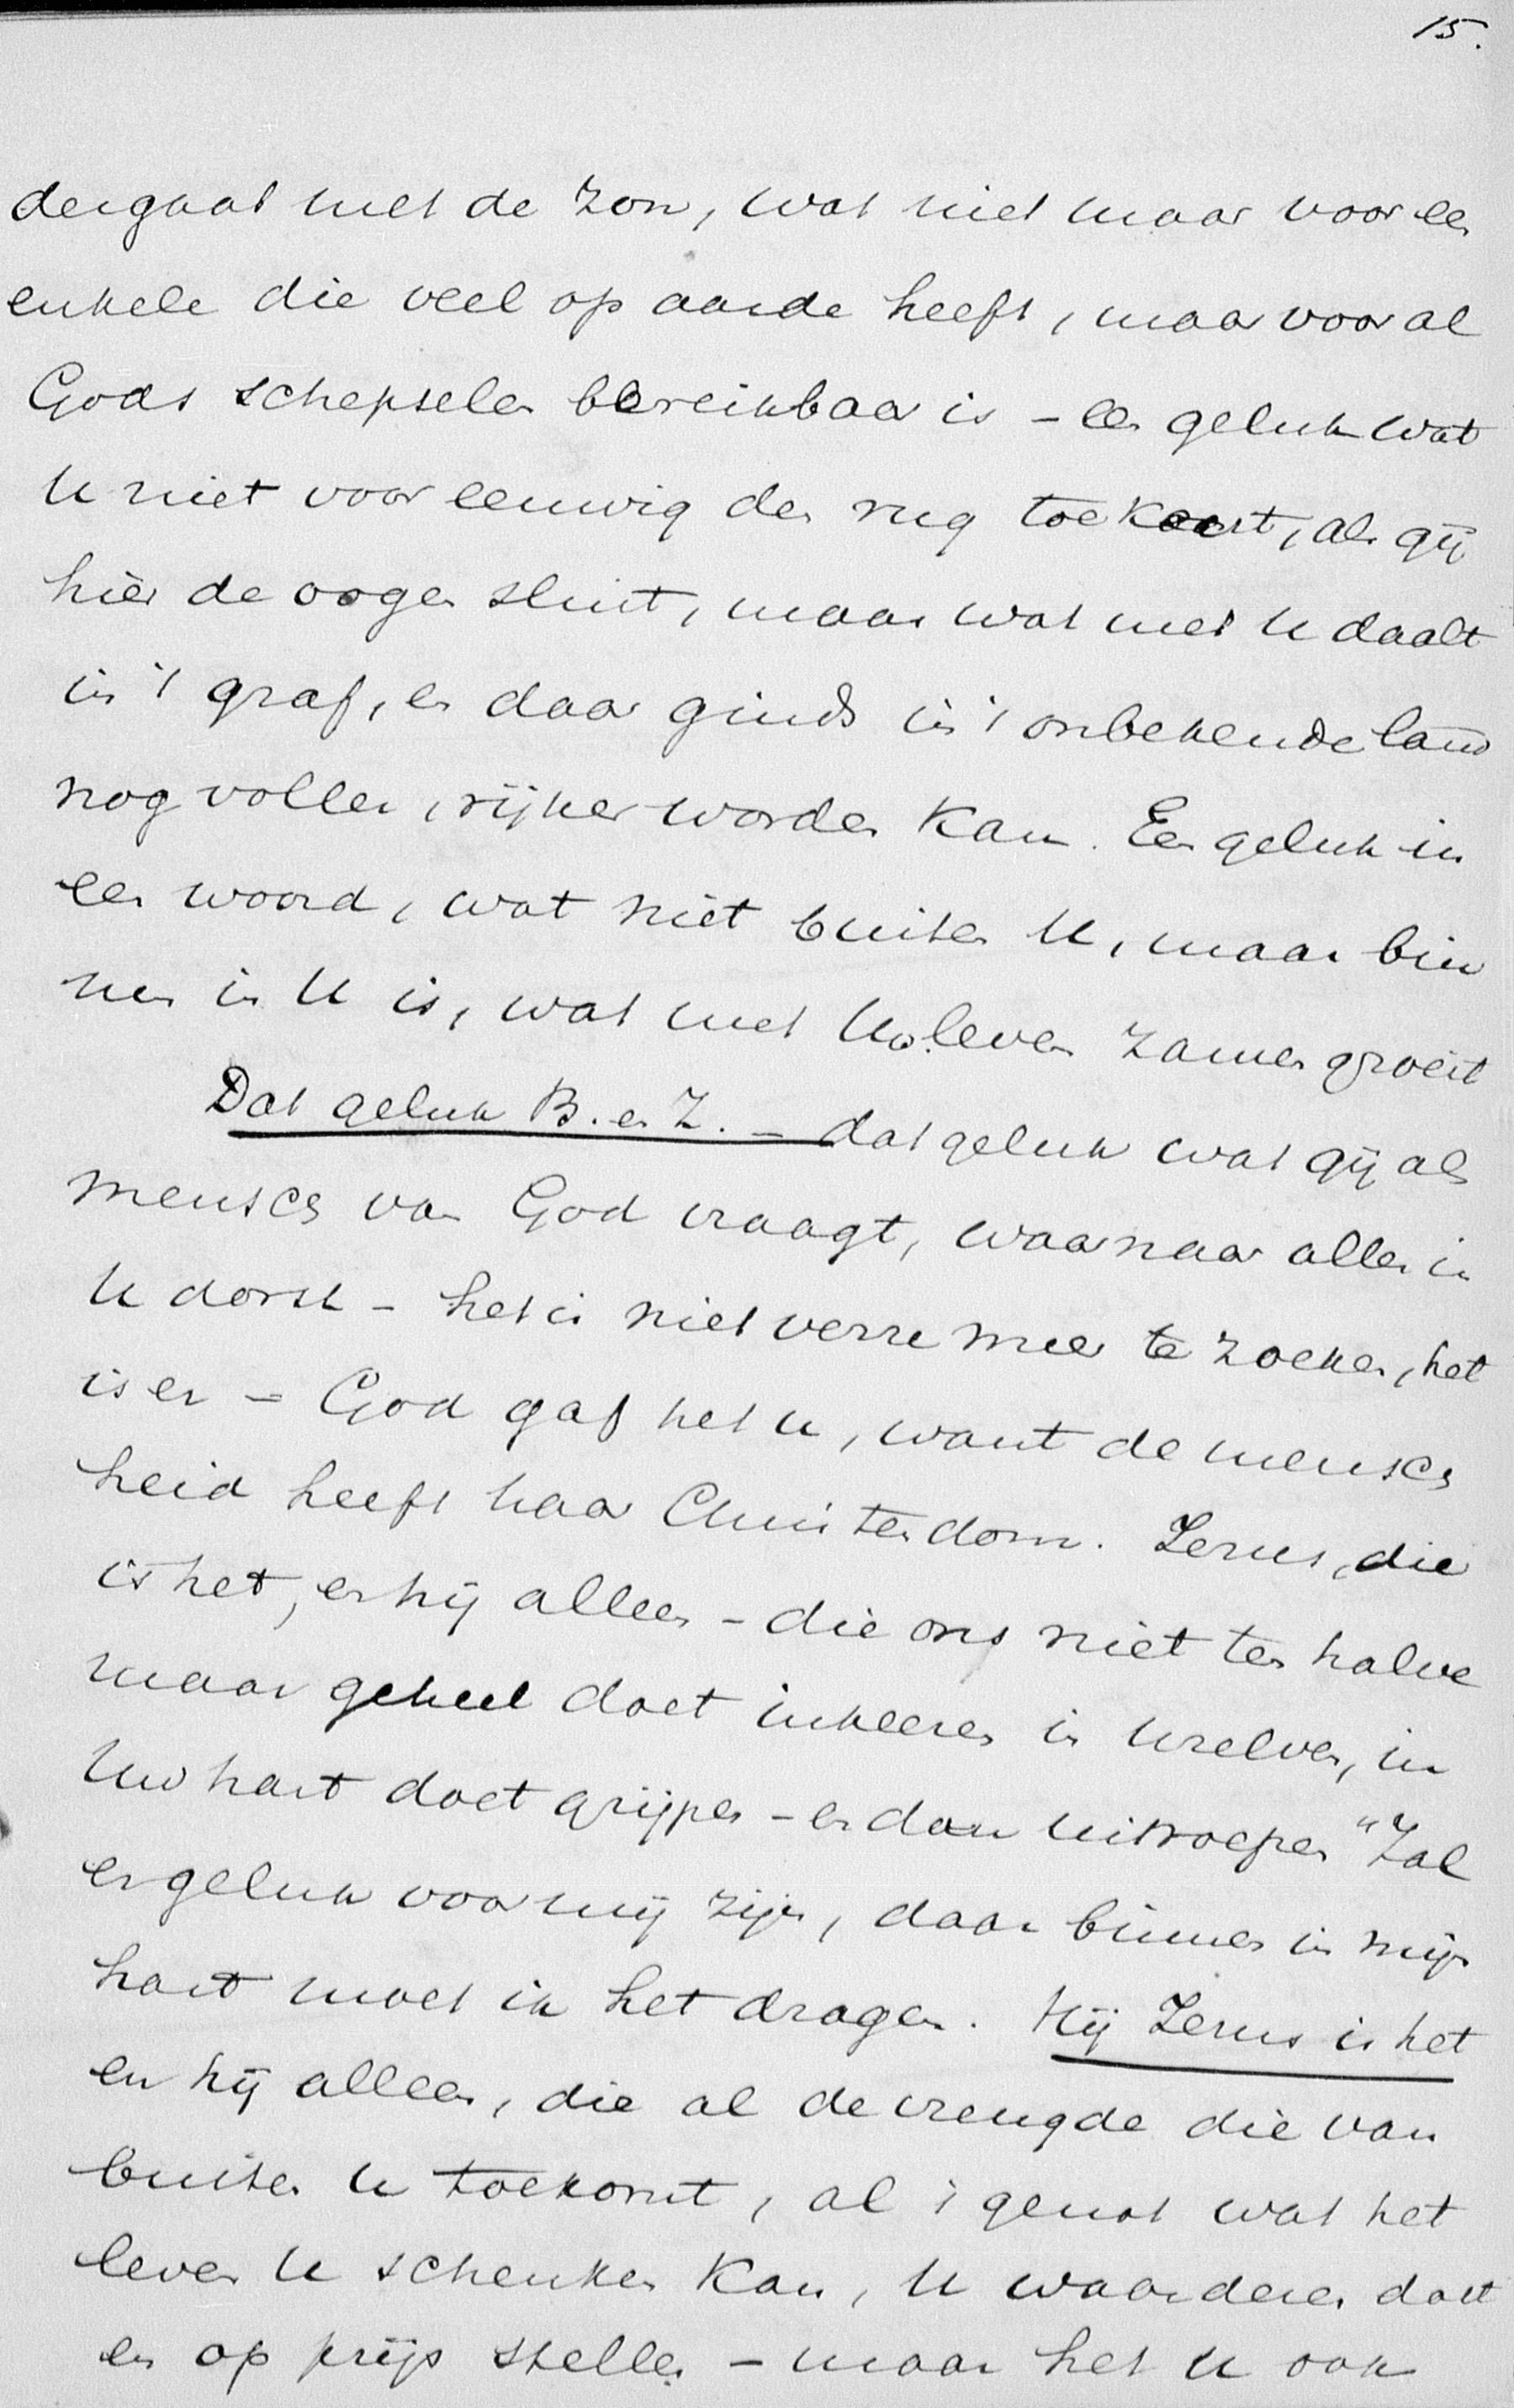 15.
dergaat met de zon, wat niet maar voor een
enkele die veel op aarde heeft, maar voor al
Gods schepselen bereikbaar is – een geluk wat
U niet voor eeuwig den rug toekeert, als gij
hier de oogen sluit, maar wat met U daalt
in 't graf, en daar ginds in 't onbekende land
nog voller, rijker worden kan. Een geluk in
een woord, wat niet buiten U, maar bin
nen in U is, wat met Uw leven zamen groeit
Dat geluk B. en Z. – dat geluk wat gij als
mensch van God vraagt, waarnaar alles in
U dorst – het is niet verre meer te zoeken, het
is er – God gaf het u, want de mensch
heid heeft haar Christendom. Jezus, die
is het, en hij alleen – die ons niet ten halve
maar geheel doet inkeeren in Uzelven, in
Uw hart doet grijpen – en dan uitroepen "Zal
er geluk voor mij zijn, daar binnen in mijn
hart moet ik het dragen. Hij Jezus is het
en hij alleen, die al de vreugde die van
buiten U toekomt, al 't genot wat het
leven U schenken kan, U waarderen doet
en op prijs stellen – maar het U ook